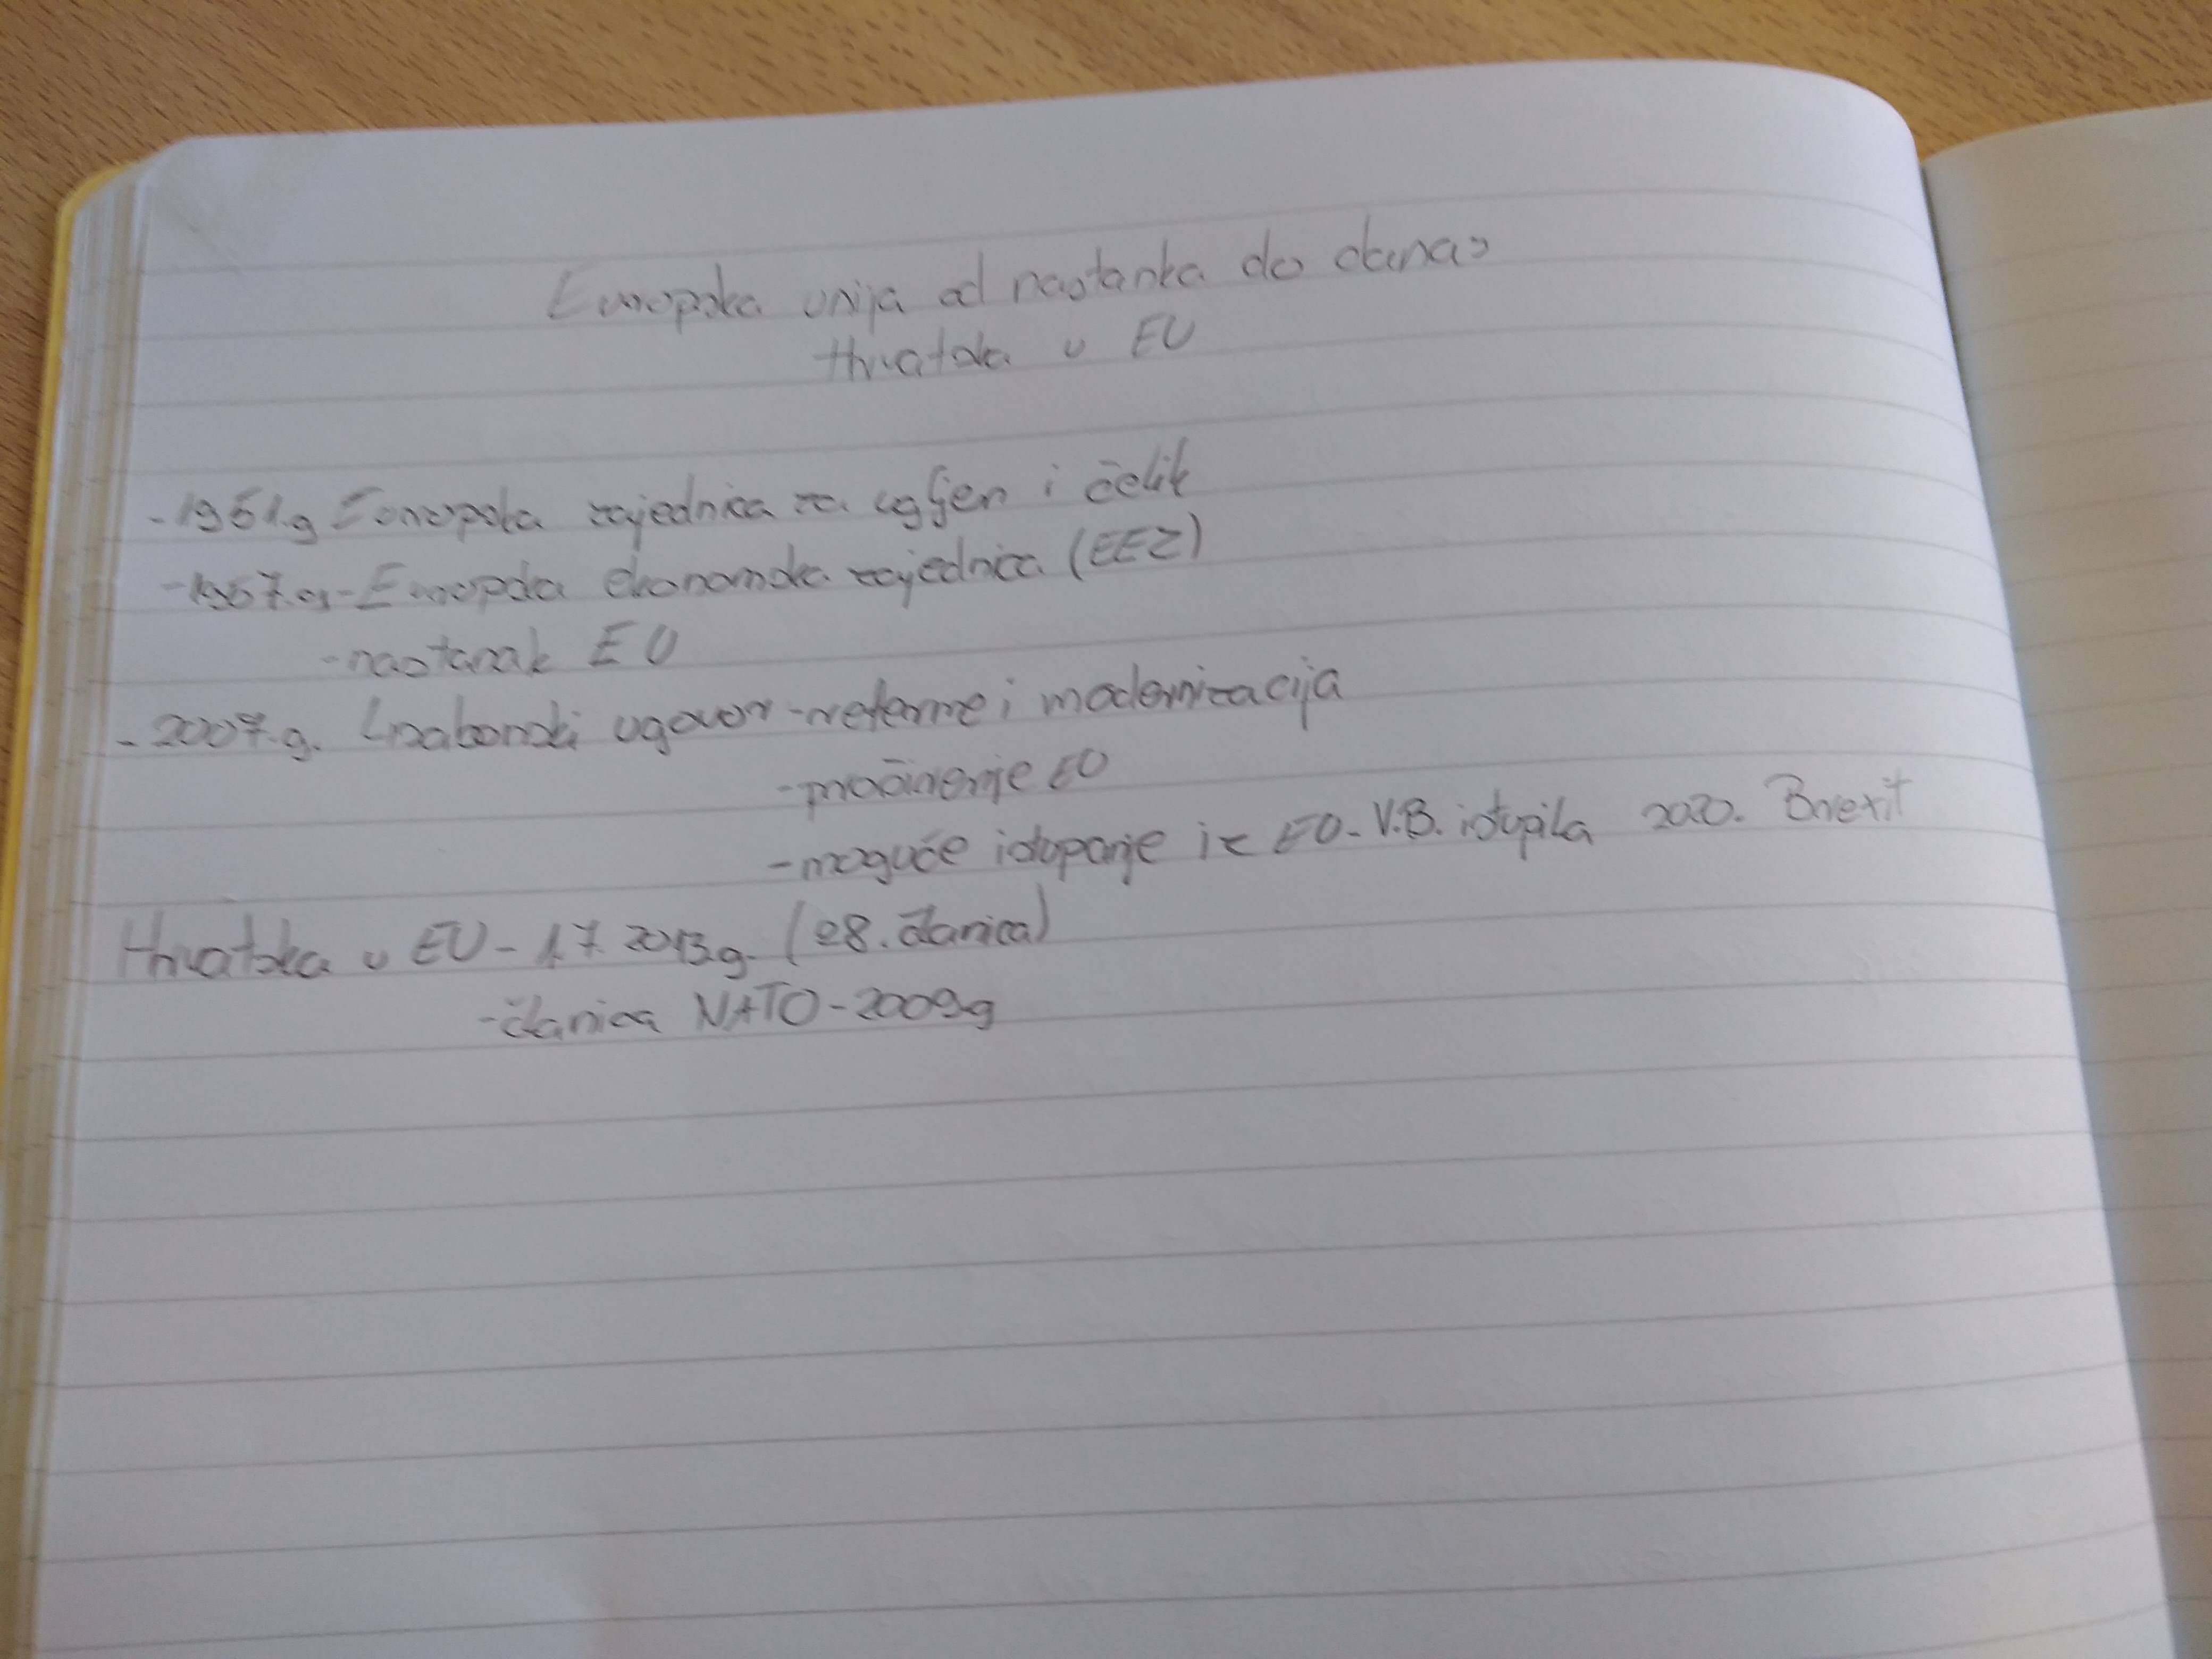 Europska unija od nastanka do danas
Hrvatska u EU
- 1951.g Europska zajednica za ugljen i čelik
- 1957.g - Europska ekonomska zajednica (EEZ)
- nastanak EU
- 2007.g. Lisabonski ugovor - reforme i modernizacija
- proširenje EU
- moguće istupanje iz EU - V.B. istupila 2020. Brexit
Hrvatska u EU - 1.7. 2013.g. (28. članica)
- članica NATO - 2009.g